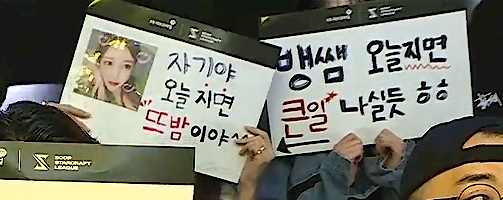 자기야
오늘 지면
"뜨밤"이야~
뱅쌤 오늘지면
큰일 나실듯 ㅎㅎ
SOOP
STARCRAFT
LEAGUE